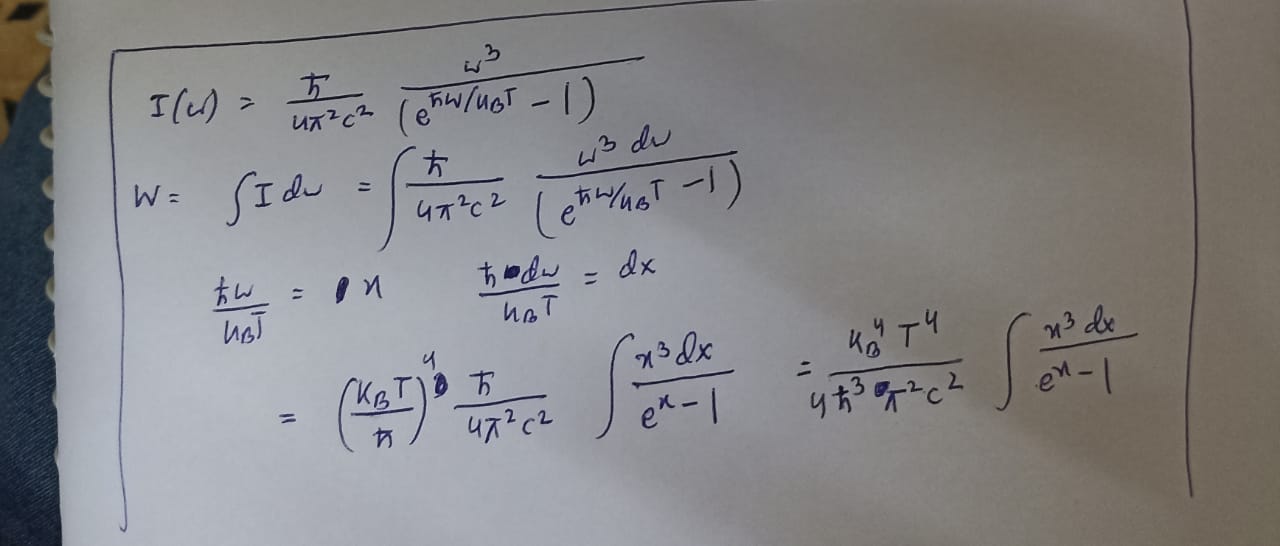 I(ω) = ħ/4π²c² ω³/(e^ħω/k_BT − 1)
W = ∫I dω = ∫ ħ/4π²c² ω³ dω/(e^ħω/k_BT − 1)
ħω/k_BT = x ħdω/k_BT = dx
= (k_BT/ħ)⁴ ħ/4π²c² ∫ x³dx/e^x − 1 = k_B⁴T⁴/4ħ³π²c² ∫ x³dx/e^x − 1